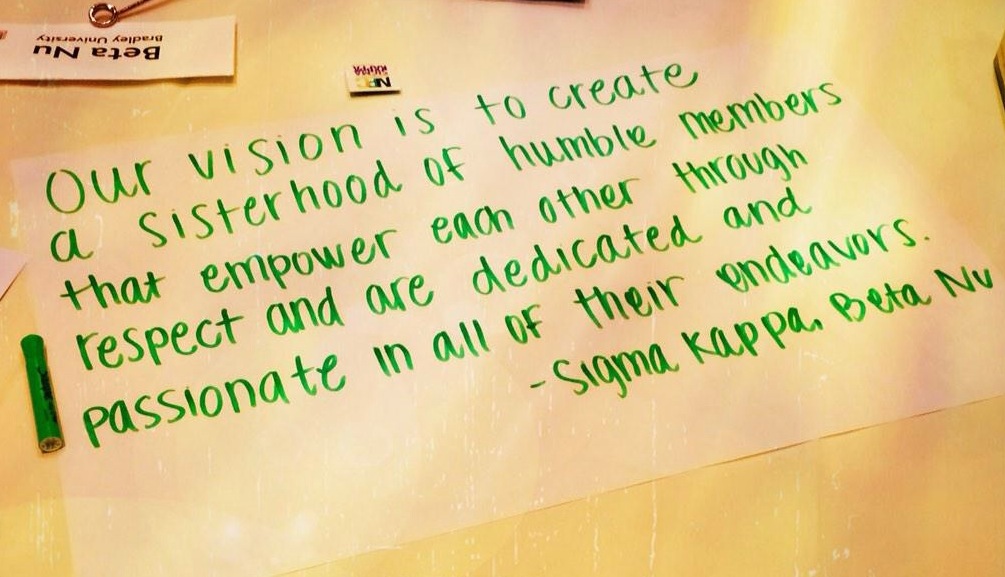 Beta Nu
Bradley University
Our vision is to create
a sisterhood of humble members
that empower each other through
respect and are dedicated and
passionate in all of their endeavors.
- Sigma Kappa, Beta Nu